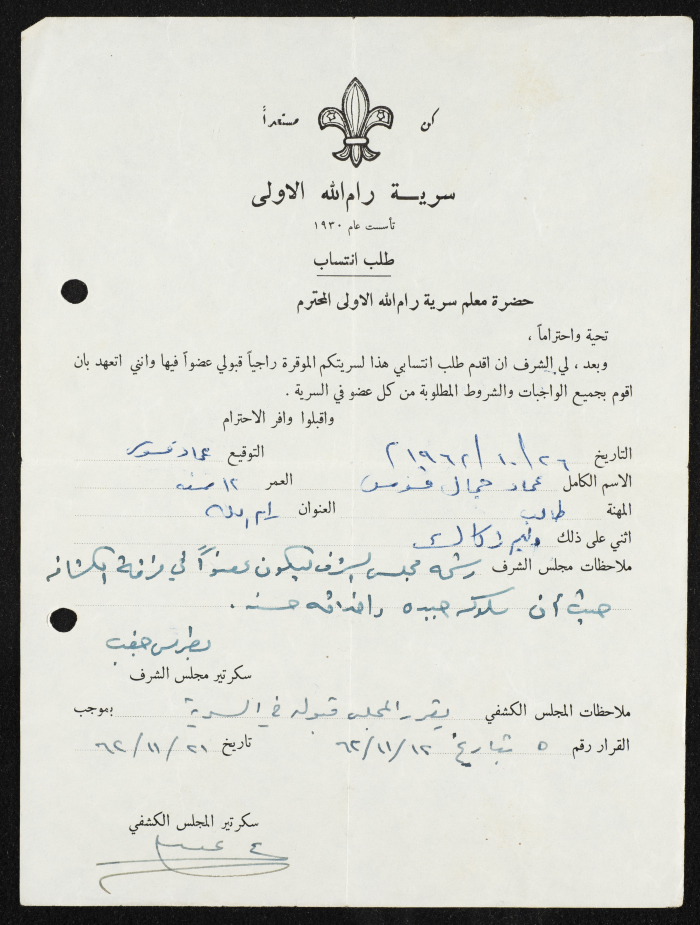 كن مستعداً
سريـــة رام الله الاولى
تأسست عام ١٩٣٠
طلب انتساب
حضرة معلم سرية رام الله الاولى المحترم
تحية واحتراماً ،
وبعد ، لي الشرف ان اقدم طلب انتسابي هذا لسريتكم الموقرة راجياً قبولي عضواً فيها وانني اتعهد بان
اقوم بجميع الواجبات والشروط المطلوبة من كل عضو في السرية .
واقبلوا وافر الاحترام
التاريخ ٢٦/١٠/١٩٦٢ م التوقيع عماد
الاسم الكامل عماد جمال العمر ١٢ سنه
المهنة طالب العنوان رام الله
اثني على ذلك
ملاحظات مجلس الشرف رشحه مجلس الشرف ليكون عضواً في فرقة الكشافه
حيث أن سلوكه جيده واخلاقه حسنه .
بطرس
سكرتير مجلس الشرف
ملاحظات المجلس الكشفي يقرر المجلس قبوله في السرية بموجب
القرار رقم ٥ بتاريخ ١٢/١١/٦٢ تاريخ ٢١/١١/٦٢
سكرتير المجلس الكشفي